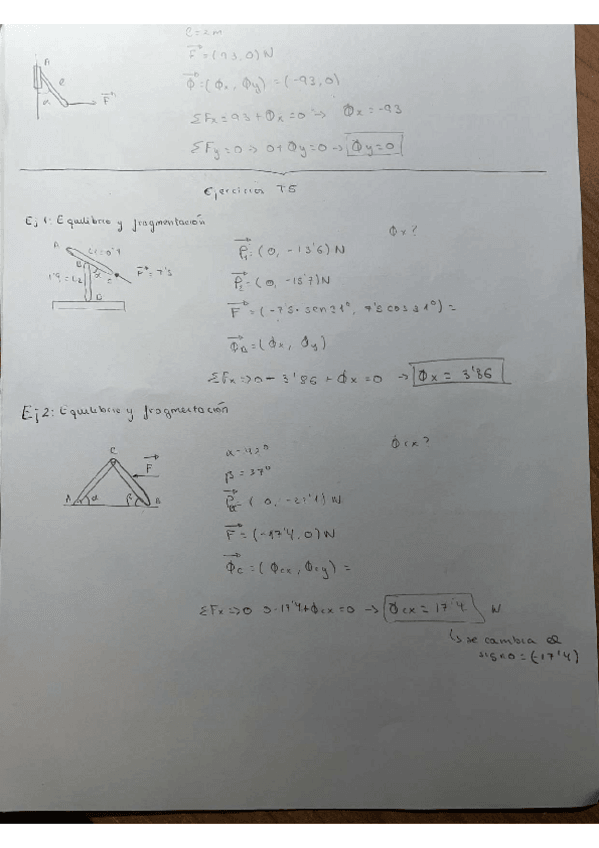 l = 2m
F = (93, 0) N
Φ = (Φx, Φy) = (-93, 0)
ΣFx = 93 + Φx = 0 → Φx = -93
ΣFy = 0 => 0 + Φy = 0 → Φy = 0
A
l
α
F
Ejercicios T5
Ej 1: Equilibrio y fragmentación
Φx?
A
B
α
C
F = 7'5
D
P1 = (0, -13'6) N
P2 = (0, -18'7) N
F = (-7'5 · sen 31º, 7'5 cos 31º) =
= (Φx, Φy)
ΣFx => 0 - 3'86 + Φx = 0 → Φx = 3'86
Ej 2: Equilibrio y fragmentación
Φcx?
C
F
A
α
β
B
α = 43º
β = 37º
(0, -21'1) N
F = (-17'4, 0) N
Φc = (Φcx, Φcy) =
ΣFx => 0 0 - 17'4 + Φcx = 0 → Φcx = 17'4 N
↳ se cambia el
signo = (-17'4)